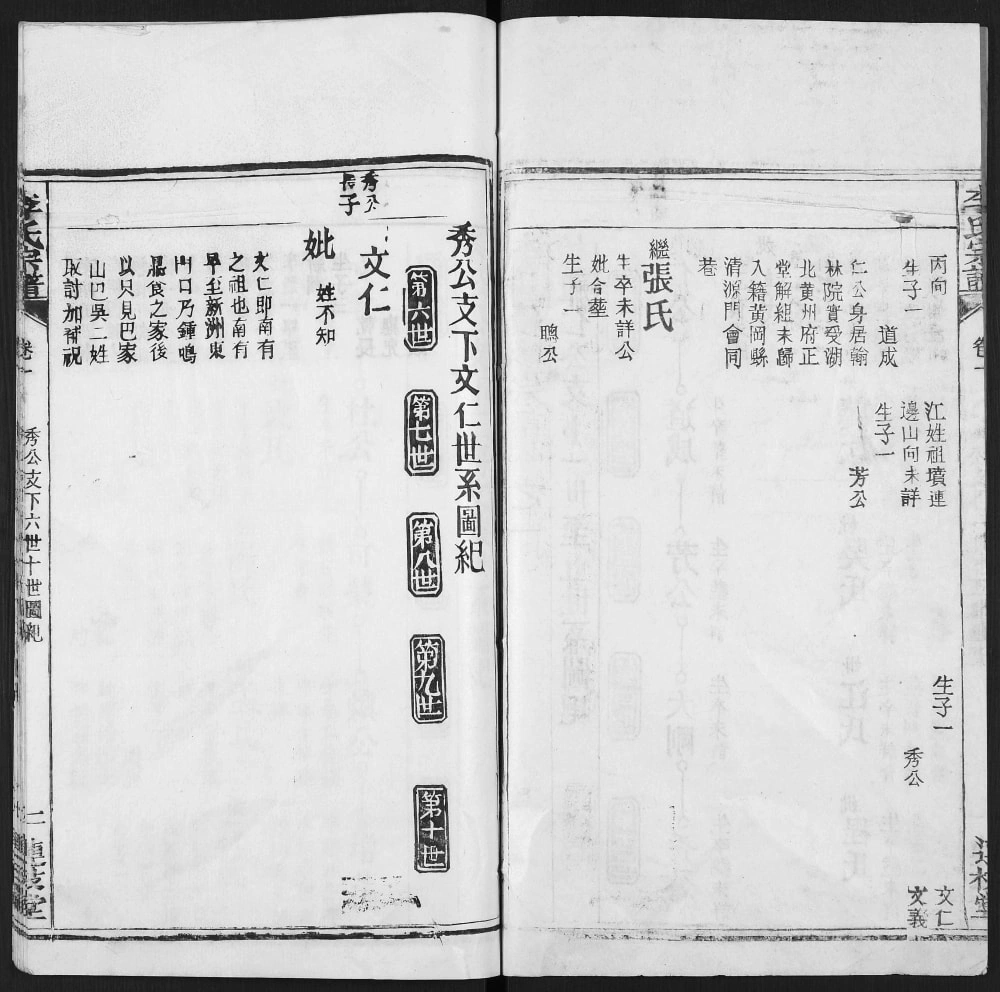 李氏宗譜
卷一
丙向
生子一
道成
仁公身居翰
林院實受湖
北黃州府正
堂解組未歸
入籍黃岡縣
清源門會同
巷
繼張氏
生卒未詳公
妣合塟
生子一
聰公
江姓祖墳連
邊山向未詳
生子一
芳公
生子一
秀公
文仁
文義
秀公支下文仁世系圖紀
第六世
第七世
第八世
第九世
第十世
秀公
長子
文仁
妣
姓不知
文仁即南有
之祖也南有
早至新洲東
門口乃鍾鳴
鼎食之家後
以只見巴家
山巴吳二姓
李氏宗譜
卷一
秀公支下六世十世圖紀
二